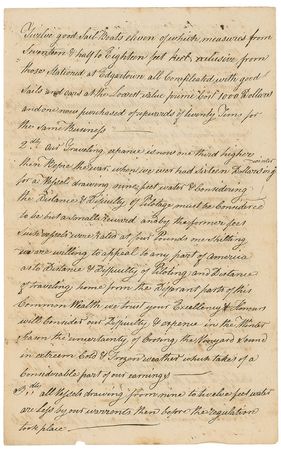 Twelve good Sail Boats eleven of which, measures from
Seventeen & half to Eighteen feet keel, exclusive, from
those Stationed at Edgartown all Compleated, with good
Sails and oars at the Lowest value prime Cost 1000 Dollars
and one now purchased of upwards of twenty Tons for
the Same Business
2dly our Traveling expence is now one third higher
then Before the war, when we had sixteen Dollars in winter
for a Vessels drawing nine feet water & Considering
the Distance & Difficulty of Pilotage must be Considered
to be but a small Reward and by the former fees
Such vessels were Rated at four Pounds one shilling
we are willing to appeal to any part of America
as to Distance & Difficulty of Piloting, and Distance
of traveling home from the Different parts of this
Common Wealth we trust your Excellency & Honours
will Consider our Difficulty & expence in the Winter
Season the uncertainty of Crosing the Vineyard Sound
in extream Cold & Frozen weather which takes of a
Considerable part of our earnings
3dly all Vessels drawing from nine to twelve feet water
are Less by our warrents then before the regulation
took place